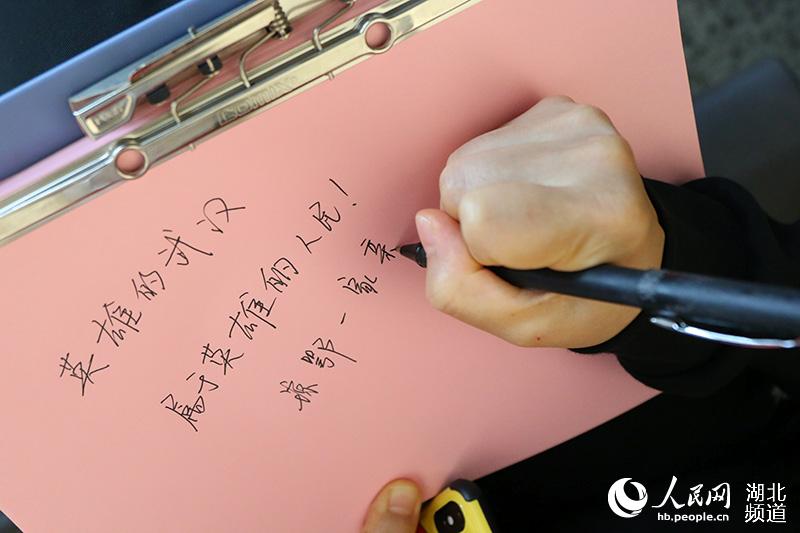 英雄的武汉
属于英雄的人民!
鄂一家亲
人民网
hb.people.cn
湖北
频道